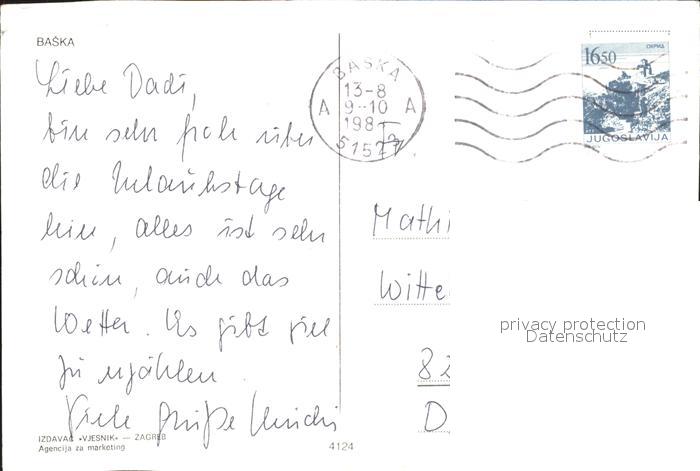 BAŠKA
Liebe Dadi,
bin sehr froh über
die Urlaubstage
hier, alles ist sehr
schön, auch das
Wetter. Es gibt viel
zu erzählen
Viele Grüße
IZDAVAČ «VJESNIK» — ZAGREB
Agencija za marketing
4124
BAŠKA
13-8
A 9-10 A
198
51523
ОХРИД
1650
JUGOSLAVIJA
Mathi
Witte
82
D
privacy protection
Datenschutz